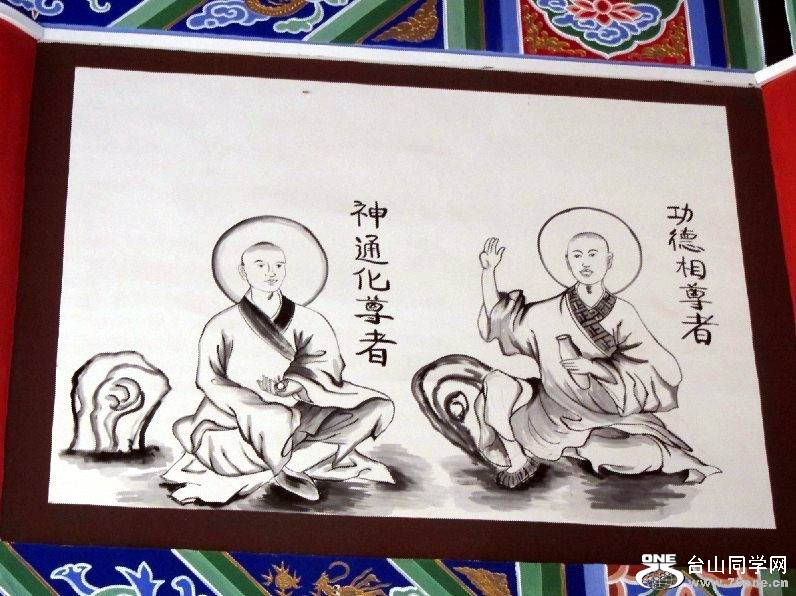 功德相尊者
神通化尊者
ONE
台山同学网
www.79one.cn